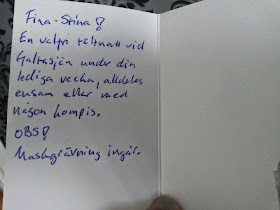 Fina-Stina!
En valfri tältnatt vid
Galtasjön under din
lediga vecka, alldeles
ensam eller med
någon kompis.
OBS!
Maskgrävning ingår.